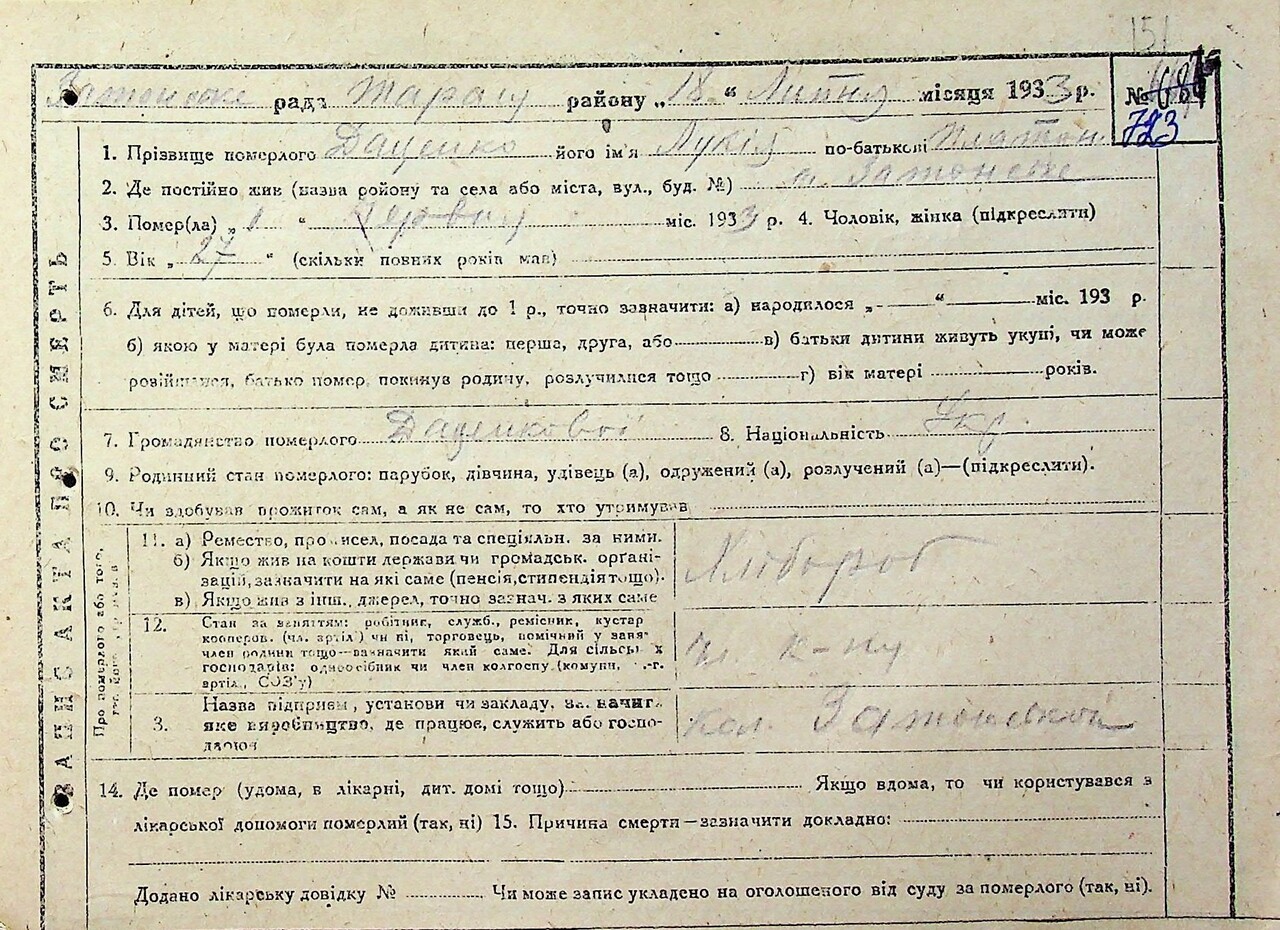 151
рада району „ 18 “ Липня місяця 1933 р. №
723
1. Прізвище померлого Даценко його ім'я Лукія по-батькові Платон
2. Де постійно жив (назва ройону та села або міста, вул., буд. №)
3. Помер(ла) „ “ Червня міс. 1933 р. 4. Чоловік, жінка (підкреслити)
5. Вік „ 27 “ (скільки повних років мав)
6. Для дітей, що померли, не доживши до 1 р., точно зазначити: а) народилося „-“ міс. 193 р.
б) якою у матері була померла дитина: перша, друга, або в) батьки дитини живуть укупі, чи може
розійшлися, батько помер, покинув родину, розлучилися тощо г) вік матері років.
7. Громадянство померлого 8. Національність Укр.
9. Родинний стан померлого: парубок, дівчина, удівець (а), одружений (а), розлучений (а)—(підкреслити).
10. Чи здобував прожиток сам, а як не сам, то хто утримував
11. а) Ремество, промисел, посада та спеціяльн. за ними.
б) Якщо жив на кошти держави чи громадськ. органі-
зацій, зазначити на які саме (пенсія, стипендія тощо).
в) Якщо жив з інш. джерел, точно зазнач. з яких саме
Хлібороб
12. Стан за заняттям: робітник, служб., ремісник, кустар
кооперов. (чл. артіл) чи ні, торговець, помічний у заня-
член родини тощо—зазначити який саме. Для сільськ х
господарів: одноосібник чи член колгоспу (комуни, -г.
артіл., СОЗ'у)
чл. к-пу
Назва підприєм, установи чи закладу, за начит.
3. яке виробництво, де працює, служить або госпо-
дарює
14. Де помер (удома, в лікарні, дит. домі тощо) Якщо вдома, то чи користувався з
лікарської допомоги померлий (так, ні) 15. Причина смерти—зазначити докладно:
Додано лікарську довідку № Чи може запис укладено на оголошеного від суду за померлого (так, ні).
ЗАПИС АКТА ПРО СМЕРТЬ
Про померлого або того,